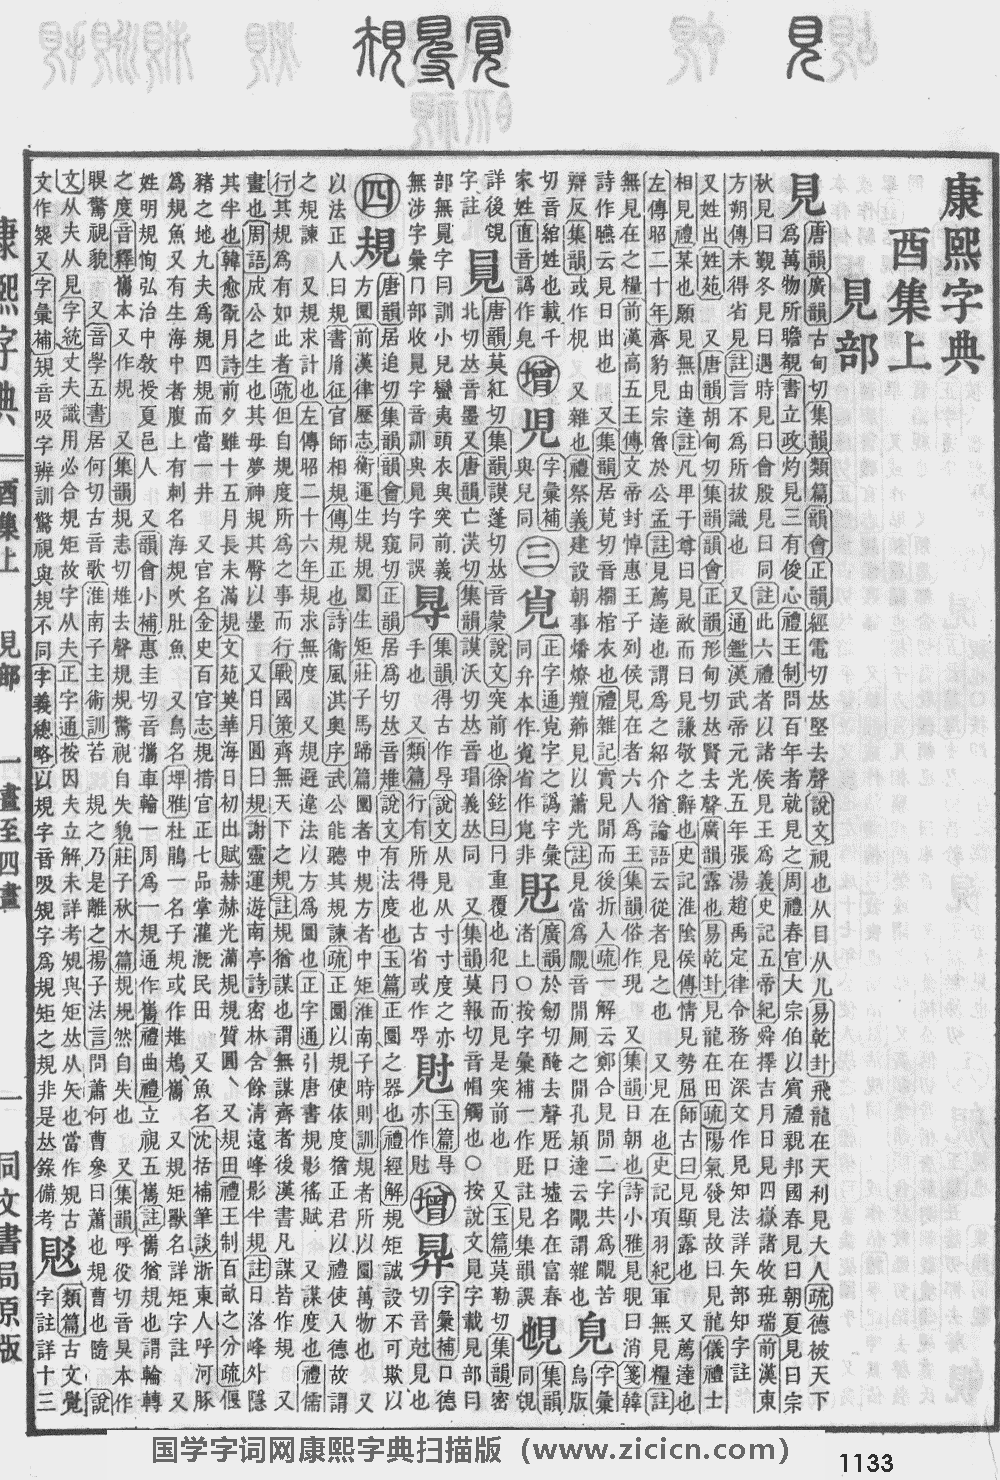 康熙字典
酉集上
見部
見
唐韻廣韻古甸切集韻類篇韻會正韻經電切𠀤堅去聲說文視也从目从儿易乾卦飛龍在天利見大人疏德被天下
所為萬物所瞻覩書立政灼見三有俊心禮王制問百年者就見之周禮春官大宗伯以賓禮親邦國春見曰朝夏見曰宗
秋見曰覲冬見曰遇時見曰會殷見曰同註此六禮者以諸侯見王為義史記五帝紀舜擇吉月日見四嶽諸牧班瑞前漢東
方朔傳未得省見註言不為所拔識也 又通鑑漢武帝元光五年張湯趙禹定律令務在深文作見知法詳矢部知字註
又姓出姓苑 又唐韻胡甸切集韻韻會正韻形甸切𠀤賢去聲廣韻露也易乾卦見龍在田疏陽氣發見故曰見龍儀禮士
相見禮某也願見無由達註凡卑于尊曰見敵而曰見謙敬之辭也史記淮陰侯傳情見勢屈師古曰見顯露也 又薦達也
左傳昭二十年齊豹見宗魯於公孟註見薦達也謂為之紹介猶論語云從者見之也 又見在也史記項羽紀軍無見糧註
無見在之糧前漢高五王傳文帝封悼惠王子列侯見在者六人為王集韻俗作現 又集韻日朝也詩小雅見晛曰消箋韓
詩作曣云見日出也 又集韻居莧切音襉棺衣也禮雜記實見閒而後折入疏一解云鄭合見閒二字共為覵苦
又雜也禮祭義建設朝事燔燎羶薌見以蕭光註見當為覵音閒厠之閒孔穎達云覵謂雜也
辯反集韻或作梘
切音綰姓也載千
家姓直音譌作皃
增
𧠇
字彙補
與兒同
三
𧠈
正字通㝵字之譌字彙
同弁本作覍省作𧠈非
𧠉
廣韻於劒切集韻於劒切𦥛去聲𧠉口墟名在富春
渚上○按字彙補一作𧠉註見集韻誤
𧠊
字彙
烏版
詳後覨
字註
𧠋
唐韻莫紅切集韻謨蓬切𠀤音蒙說文突前也徐鉉曰冃重覆也犯冃而見是突前也 又玉篇莫勒切集韻密
北切𠀤音墨 又唐韻亡沃切集韻謨沃切𠀤音瑁義𠀤同 又集韻莫報切音帽觸也○按說文見字載見部曰
部無見字曰訓小兒蠻夷頭衣與突前義
無涉字彙冂部收見字音訓與見字同誤
㝵
集韻得古作㝵說文从見从寸寸度之亦
手也 又類篇行有所得也古省或作㝵
𧠎
玉篇㝵
亦作𧠎
增
𧠏
字彙補口德
切音剋見也
四
規
唐韻居追切集韻韻會均窺切正韻居為切𠀤音雉說文有法度也玉篇正圜之器也禮經解規矩誠設不可欺以
方圜前漢律歷志衡運生規規圜生矩莊子馬蹄篇圜者中規方者中矩淮南子時則訓規者所以圜萬物也 又
以法正人曰規書胤征官師相規傳規正也詩衞風淇奧序武公能聽其規諫疏正圜以規使依度猶正君以禮使入德故謂
之規諫 又規求計也左傳昭二十六年規求無度 又規避違法以方為圜也正字通引唐書規影徭賦 又謀度也禮儒
行其規為有如此者疏但自規度所為之事而行戰國策齊無天下之規註規猶謀也謂無謀齊者後漢書凡謀皆作規 又
畫也周語成公之生也其母夢神規其臀以墨 又日月圓曰規謝靈運遊南亭詩密林含餘淸遠峰影半規註日落峰外隱
其半也韓愈翫月詩前夕雖十五月長未滿規文苑英華海日初出賦赫赫光滿規規質圓、又規田禮王制百畝之分疏偃
豬之地九夫為規四規而當一井 又官名金史百官志規措官正七品掌灌漑民田 又魚名沈括補筆談浙東人呼河豚
為規魚又有生海中者腹上有刺名海規吹肚魚 又鳥名埤雅杜鵑一名子規或作鴂鴟雟 又規矩獸名詳矩字註 又
姓明規恂弘治中敎授夏邑人 又韻會小補惠圭切音攜車輪一周為一規通作雟禮曲禮立視五雟註雟猶規也謂輪轉
之度音釋雟本又作規 又集韻規恚切雉去聲規規驚視自失貌莊子秋水篇規規然自失也 又集韻呼役切音狊本作
瞁驚視貌 又音學五書居何切古音歌淮南子主術訓若 規之乃是離之楊子法言問蕭何曹參曰蕭也規曹也隨 說
文从夫从見字統丈夫識用必合規矩故字从夫正字通按因夫立解未詳考規與矩𠀤从矢也當作䂓古文
文作槼又字彙補䂓音吸字辨訓驚視與規不同字義總略以規字音吸䂓字為規矩之規非是𠀤錄備考
𧠐
類篇古文覺
字註詳十三
康熙字典
酉集上 見部 一畫至四畫
一
同文書局原版
国学字词网康熙字典扫描版（www.zicicn.com）
1133